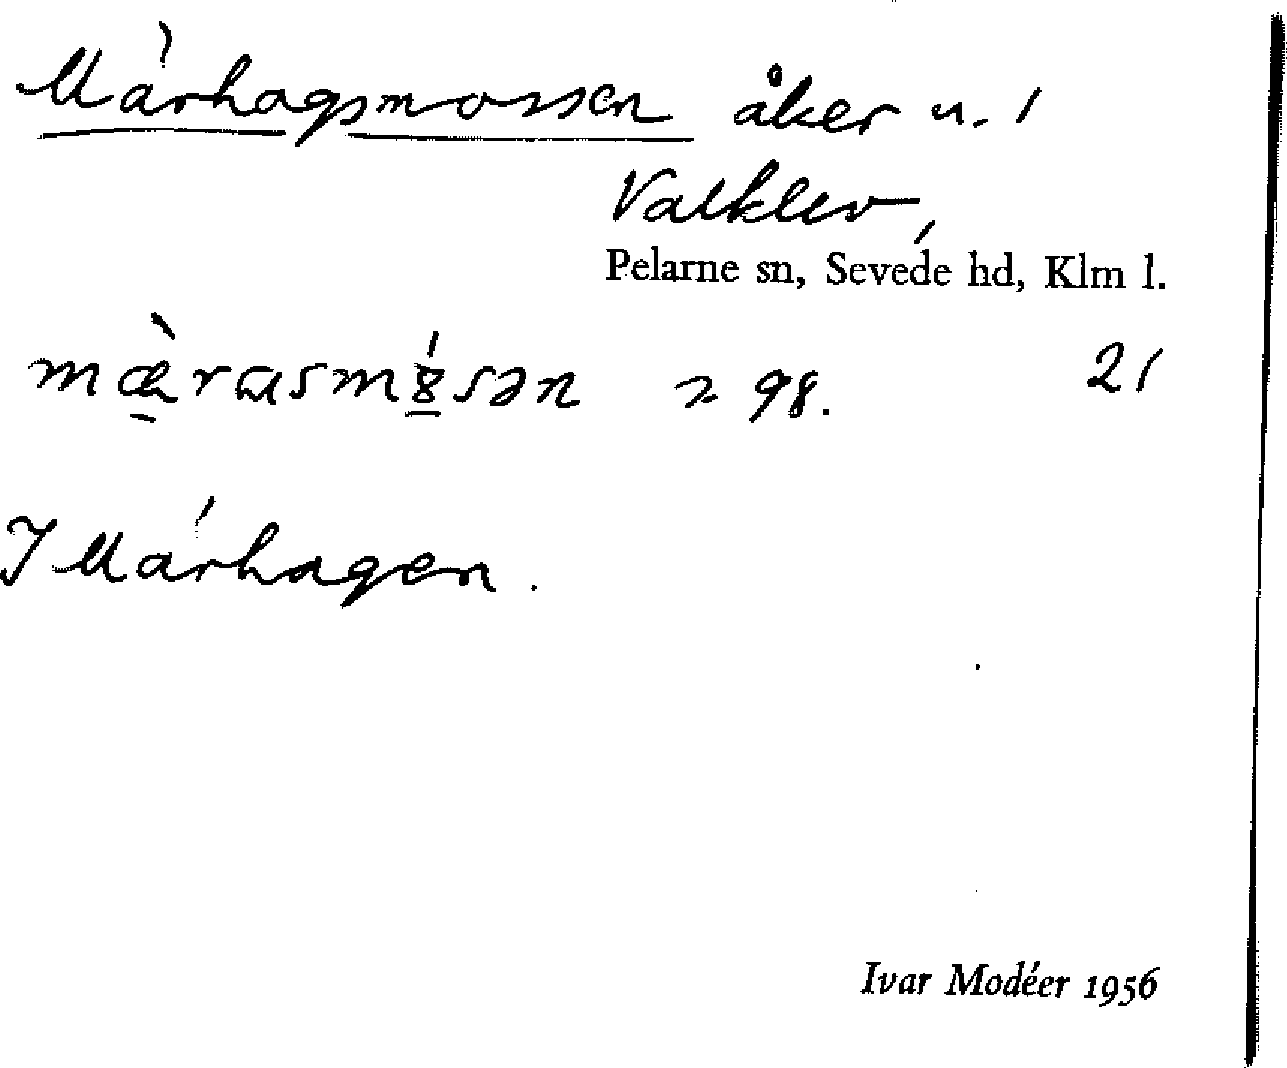 Màrhagsmossen åker n. 1
Valklev,
Pelarne sn, Sevede hd, Klm l.
98. 21
I Márhagen.
Ivar Modéer 1956